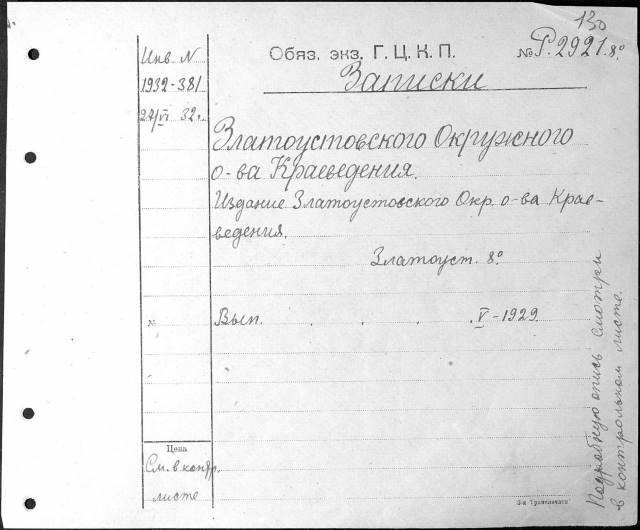 130
Инв. N
1932-381
24/VI 32 г.
Обяз. экз. Г. Ц. К. П.
№ Р. 2921. 8º
Записки
Златоустовского Окружного
о-ва Краеведения.
Издание Златоустовского Окр. о-ва Крае-
ведения.
Златоуст. 8º
№
Вып. . . . . V - 1929
Цена
См. в контр.
листе
Подробную опись смотри
в контрольном листе.